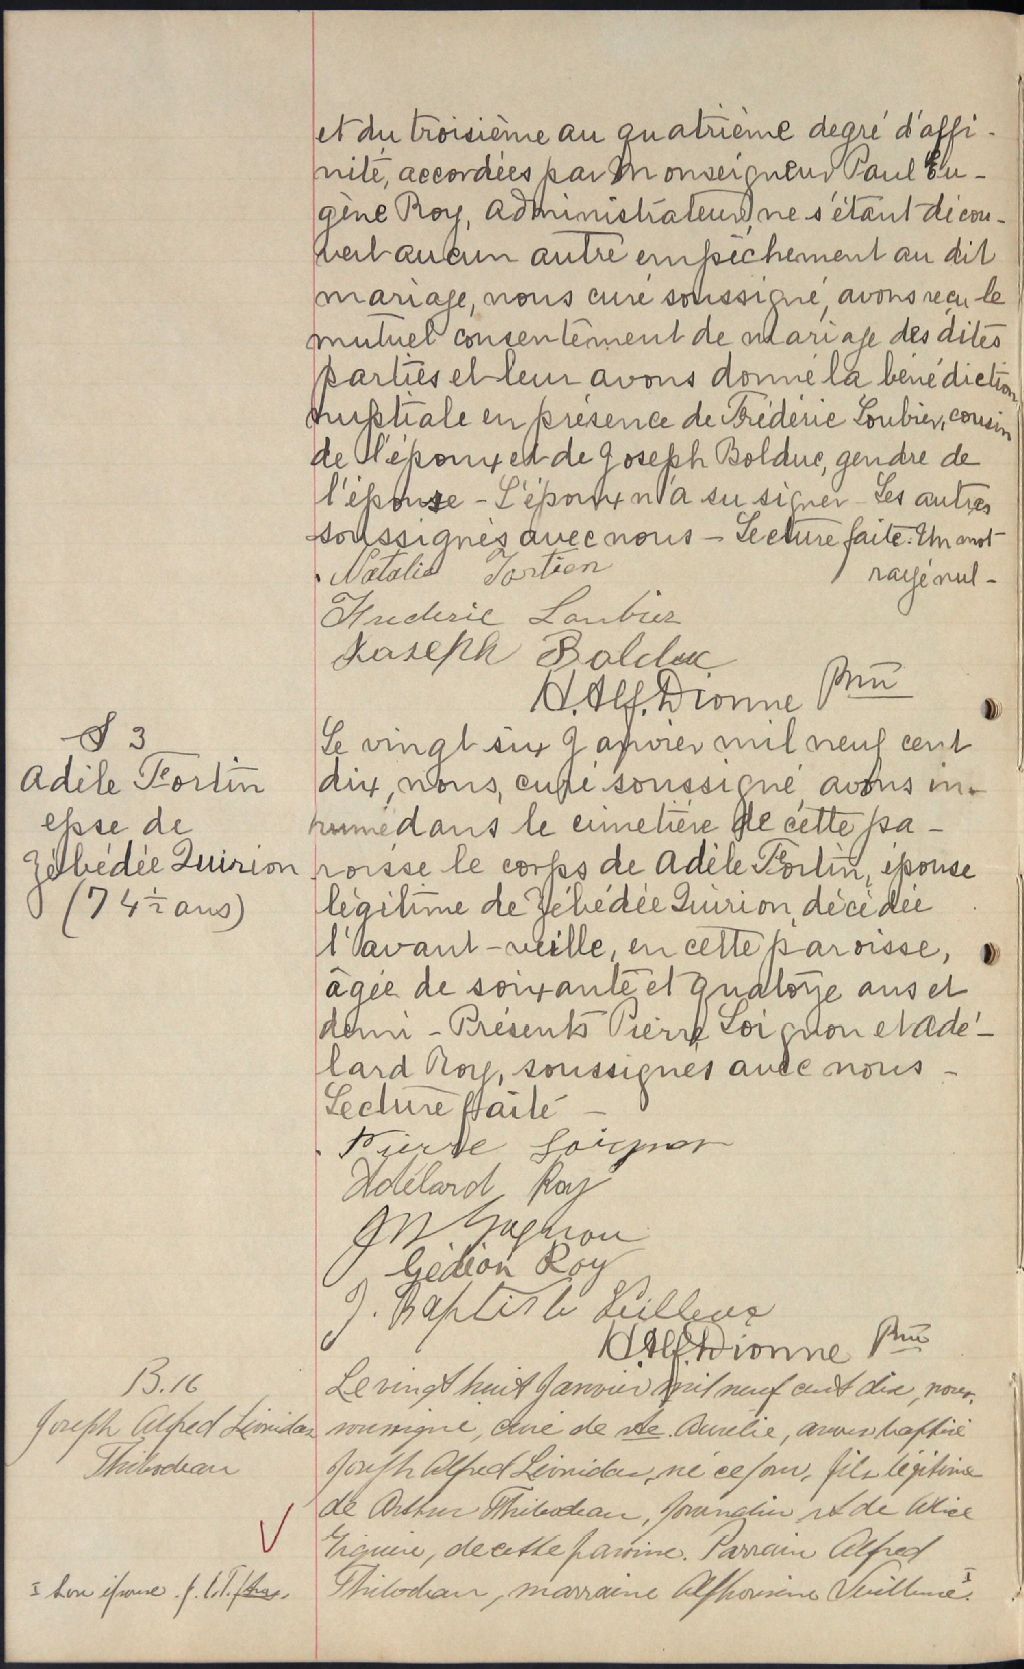 et du troisième au quatrième degré d'affi-
nité, accordées par Monseigneur Paul Eu-
gène Roy, administrateur, ne s'étant décou-
vert aucun autre empêchement au dit
mariage, nous curé soussigné, avons reçu le
mutuel consentement de mariage des dites
parties et leur avons donné la bénédiction
nuptiale en présence de Frédéric Loubier, cousin
de l'époux et de Joseph Bolduc, gendre de
l'épouse - L'époux n'a su signer - Les autres
soussignés avec nous - Lecture faite. Un mot
rayé nul -
Natalie Fortien
Frederic Loubier
Joseph Bolduc
H. Alf. Dionne Ptre
S 3
Adèle Fortin
epse de
Zébédée Quirion
(74 1/2 ans)
Le vingt six Janvier mil neuf cent
dix, nous, curé soussigné avons in-
humé dans le cimetière de cette pa-
roisse le corps de Adèle Fortin, épouse
légitime de Zébédée Quirion, décédée
l'avant-veille, en cette paroisse,
âgée de soixante et quatorze ans et
demi - Présents Pierre Loignon et Adé-
lard Roy, soussignés avec nous -
Lecture faite -
Pierre Loignon
Adélard Roy
JN Gagnon
Gédéon Roy
J. Baptiste Veilleux
H. Alf. Dionne Ptre
B.16
Joseph Alfred Léonidas
Thibodeau
Le vingt huit Janvier mil neuf cent dix, nous,
soussigné, curé de Ste Aurélie, avons baptisé
Joseph Alfred Léonidas, né ce jour, fils légitime
de Arthur Thibodeau, journalier et de Alice
Giguère, de cette paroisse. Parrain Alfred
Thibodeau, marraine Alphonsine Veilleux I
I son épouse.